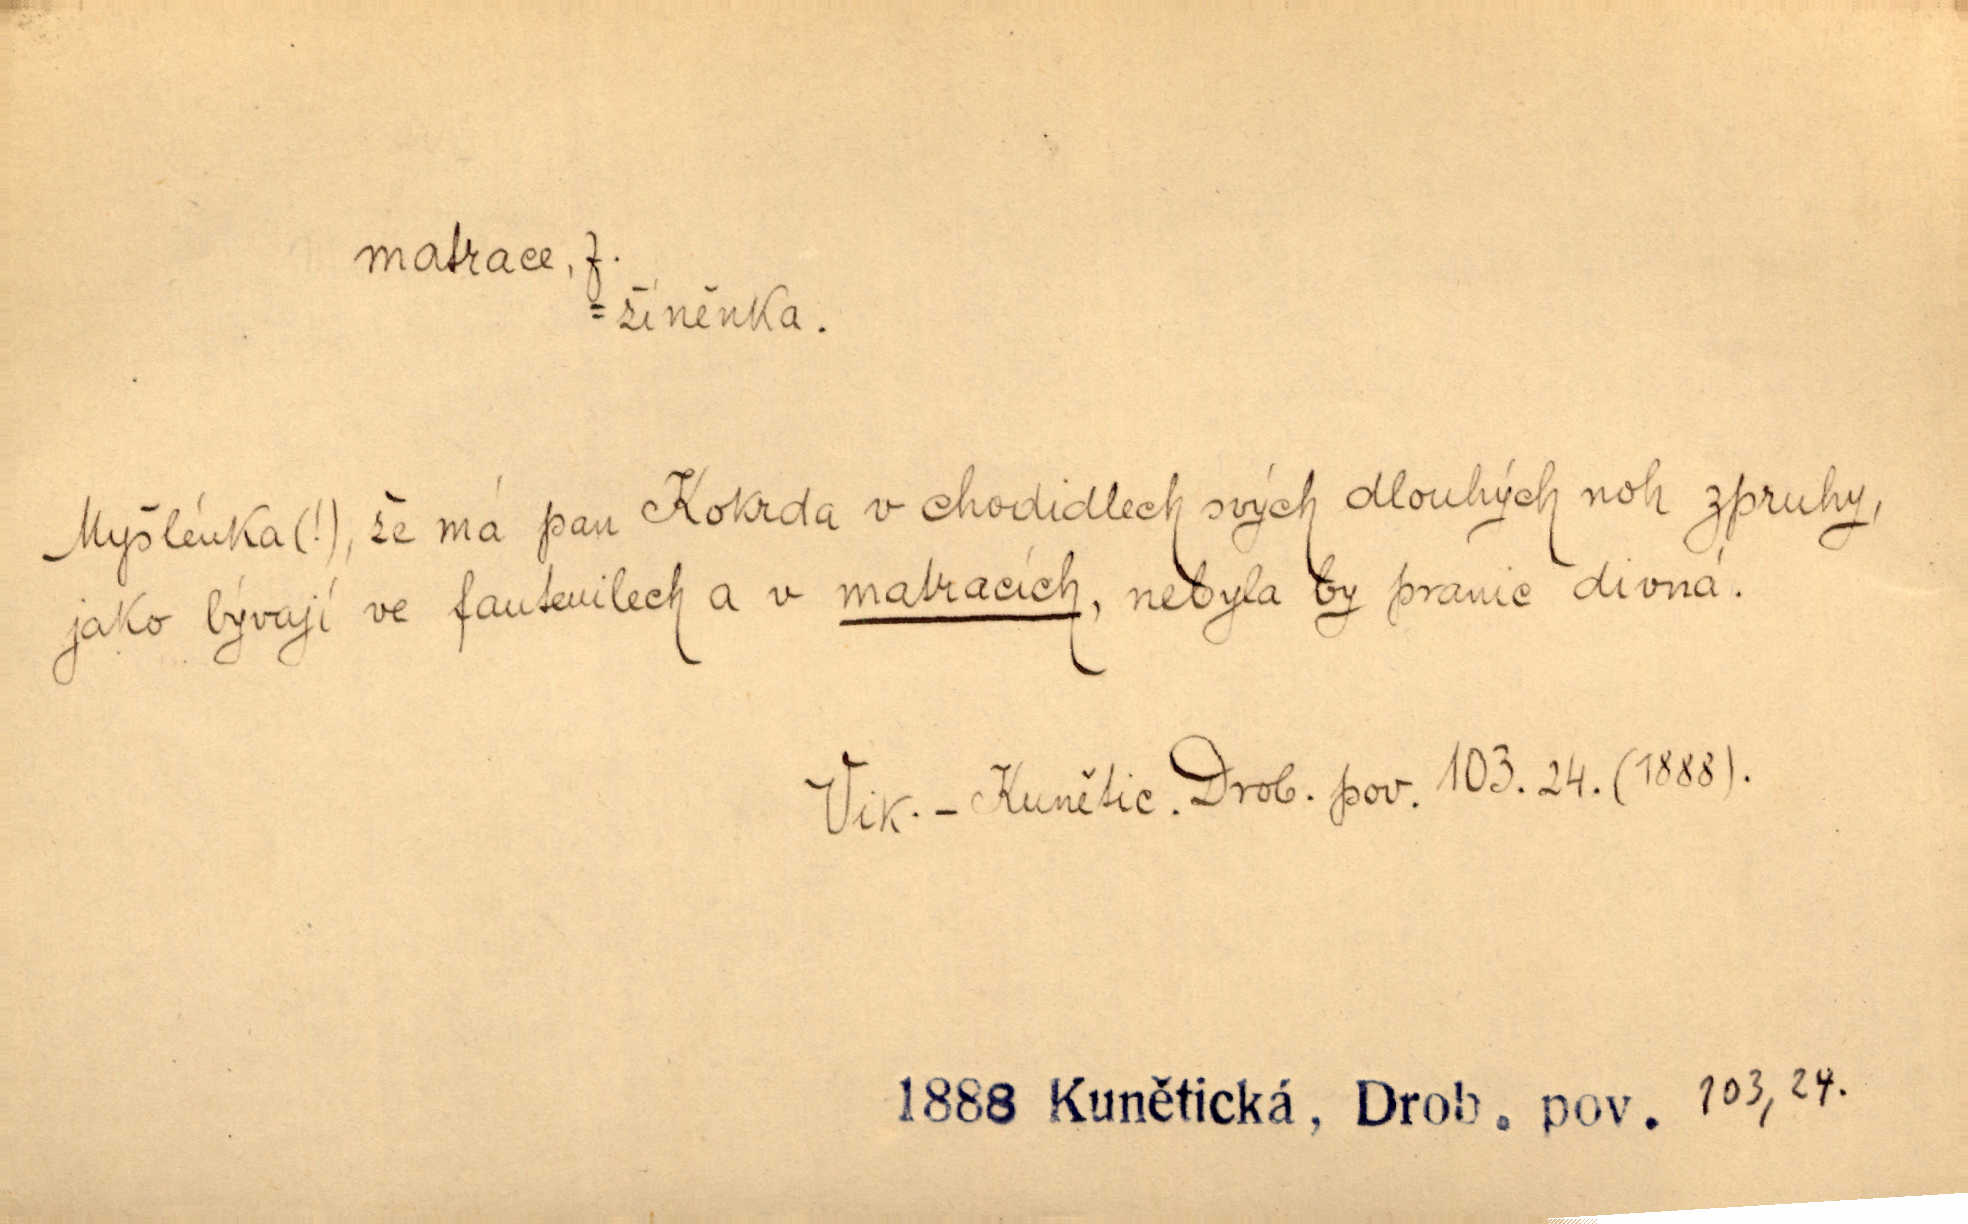 matrace, f.
= žíněnka.
Myšlénka (!), že má pan Kokrda v chodidlech svých dlouhých noh zpruhy,
jako bývají ve fauteuilech a v matracích, nebyla by pranic divná.
Vik. - Kunětic. Drob. pov. 103. 24. (1888).
1888 Kunětická, Drob. pov. 103, 24.